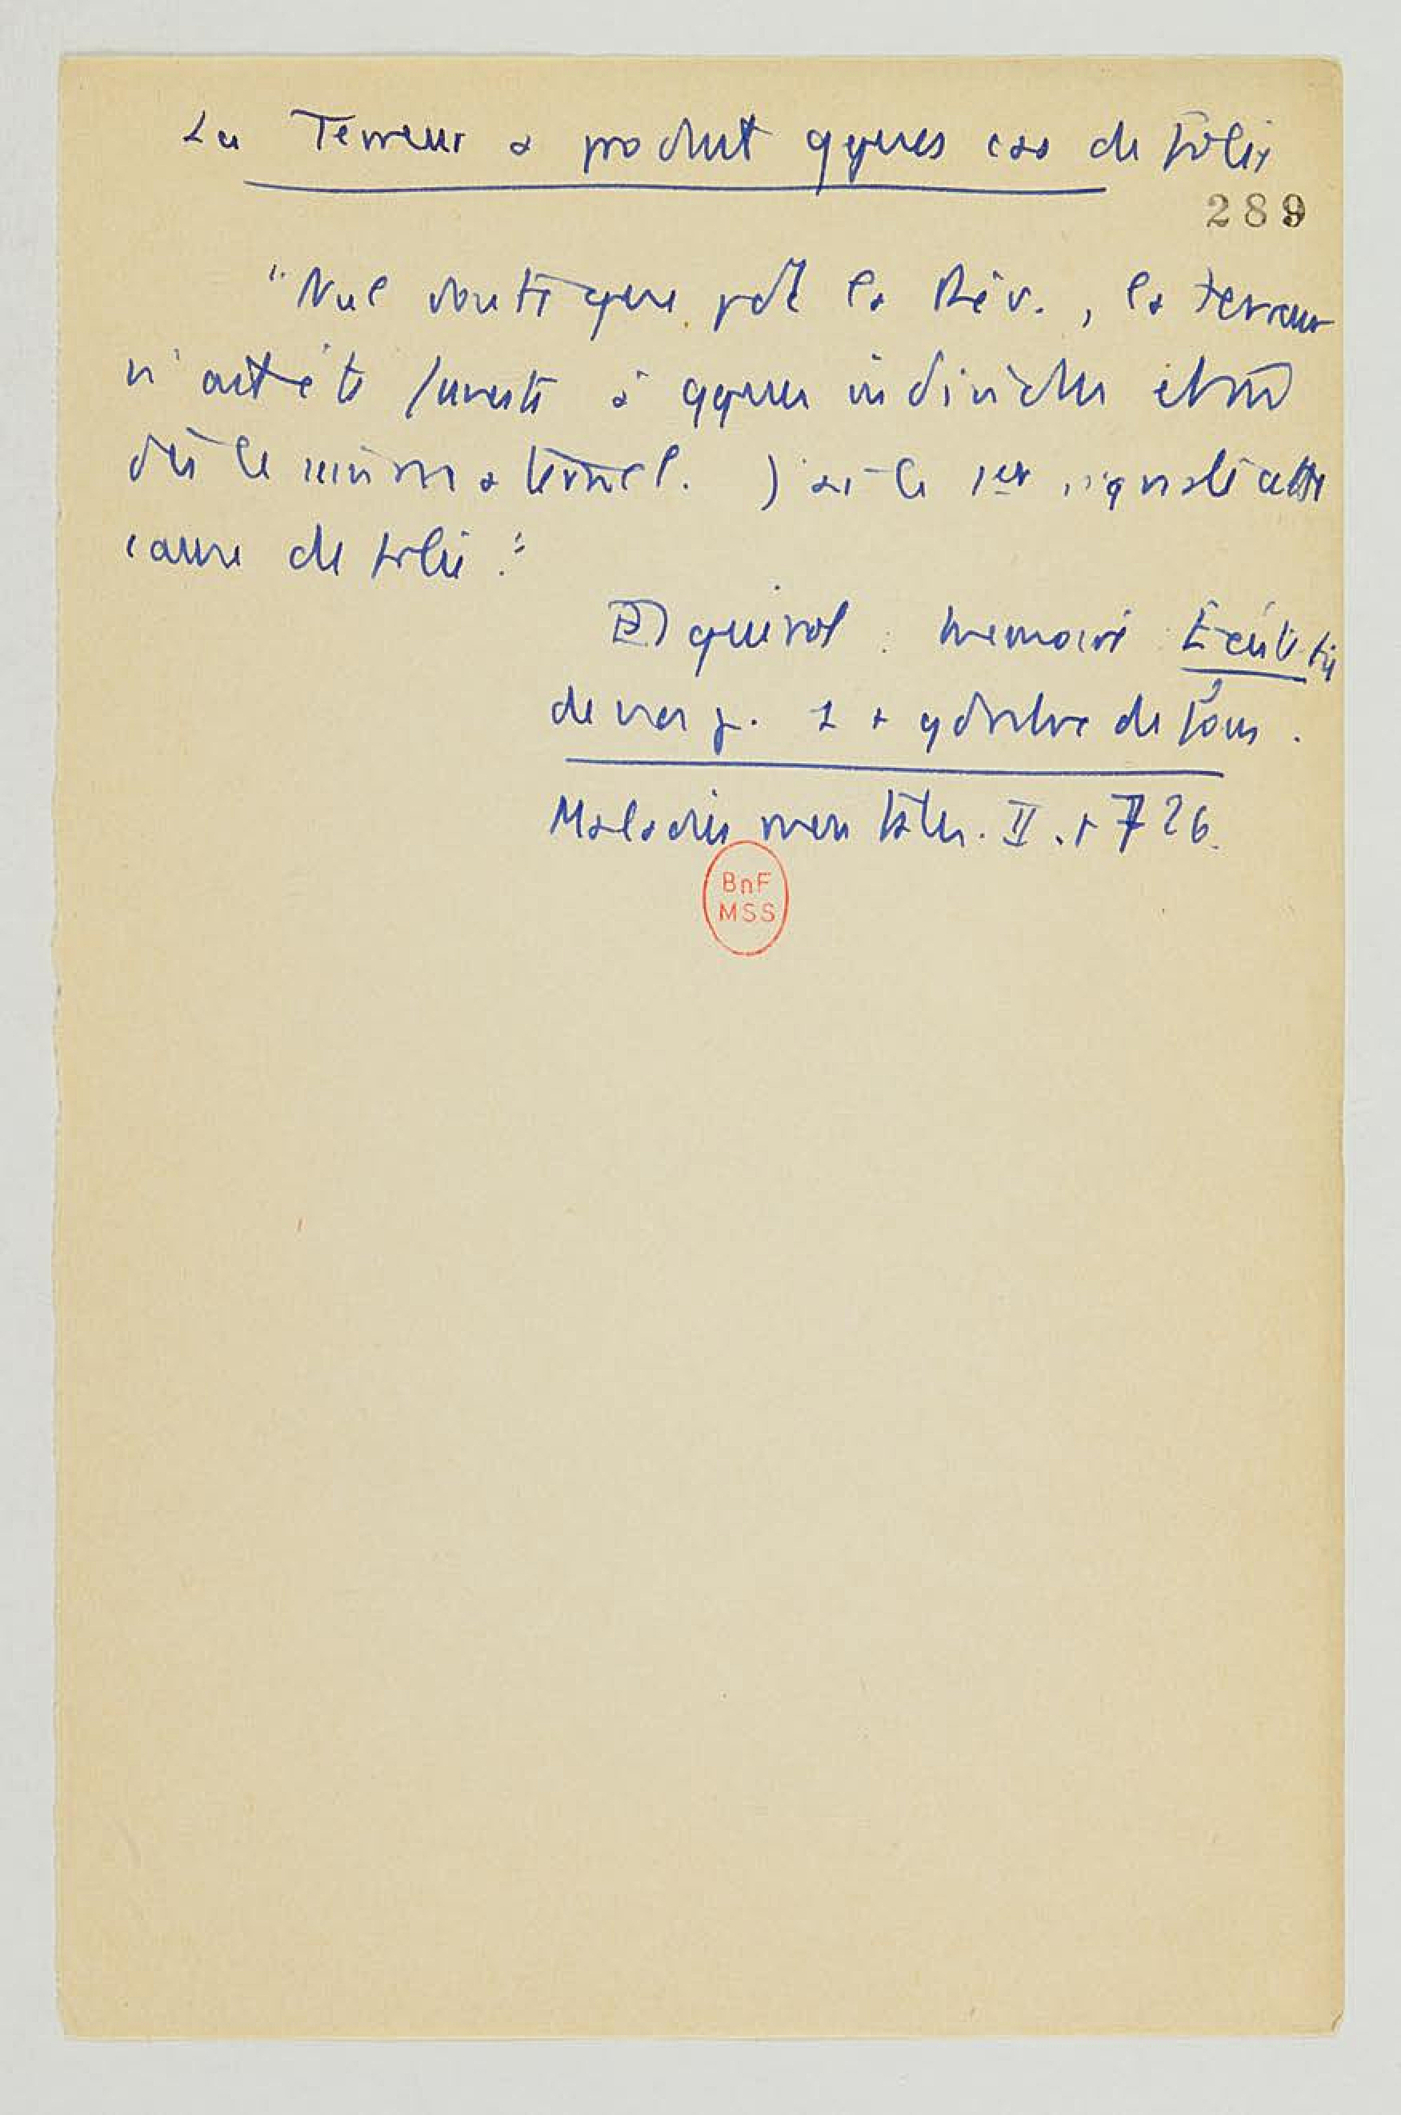 La Terreur a produit qques cas de folie
289
"Nul doute que pdt la Rév., la terreur
n'ait été funeste à qques individus et m̂
dès le sein maternel. J'ai le 1er signalé cette
cause de folie."
Esquirol. Mémoire
de fous.
Maladies mentales. II. p 726.
BnF
MSS